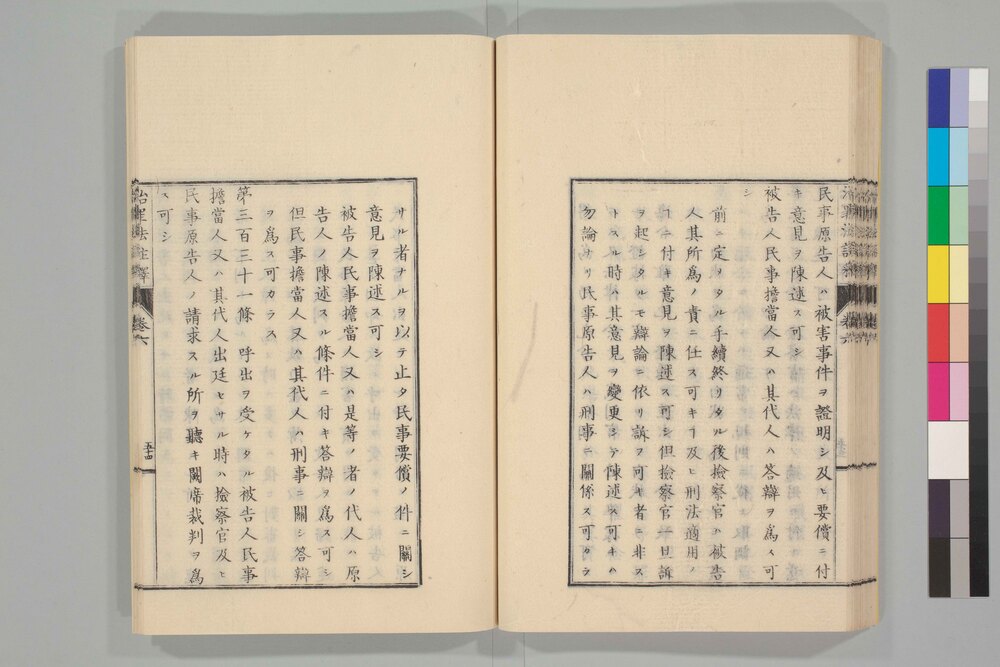 民事原告人ハ被害事件ヲ證明シ及ヒ要償ニ付
キ意見ヲ陳述ス可シ
被告人民事擔當人又ハ其代人ハ答辯ヲ爲ス可
シ
前ニ定ヲタル手續終リタル後撿察官ハ被告
人其所爲ノ責ニ任ス可キヿ及ヒ刑法適用ノ
ヿニ付キ意見ヲ陳述ス可シ但撿察官一旦訴
ヲ起シタルモ辯論ニ依リ訴フ可キ者ニ非ス
トスル時ハ其意見ヲ變更シテ陳述ス可キハ
勿論ナリ民事原告人ハ刑事ニ關係ス可カラ
サル者ナルヲ以テ止タ民事要償ノ件ニ關シ
意見ヲ陳述ス可シ
被告人民事擔當人又ハ是等ノ者ノ代人ハ原
告人ノ陳述スル條件ニ付キ答辯ヲ爲ス可シ
但民事擔當人又ハ其代人ハ刑事ニ關シ答辯
ヲ爲ス可カラス
第三百三十一條 呼出ヲ受ケタル被告人民事
擔當人又ハ其代人出廷セサル時ハ撿察官及ヒ
民事原告人ノ請求スル所ヲ聽キ闕席裁判ヲ爲
ス可シ
治罪法註釋 卷六 五十四